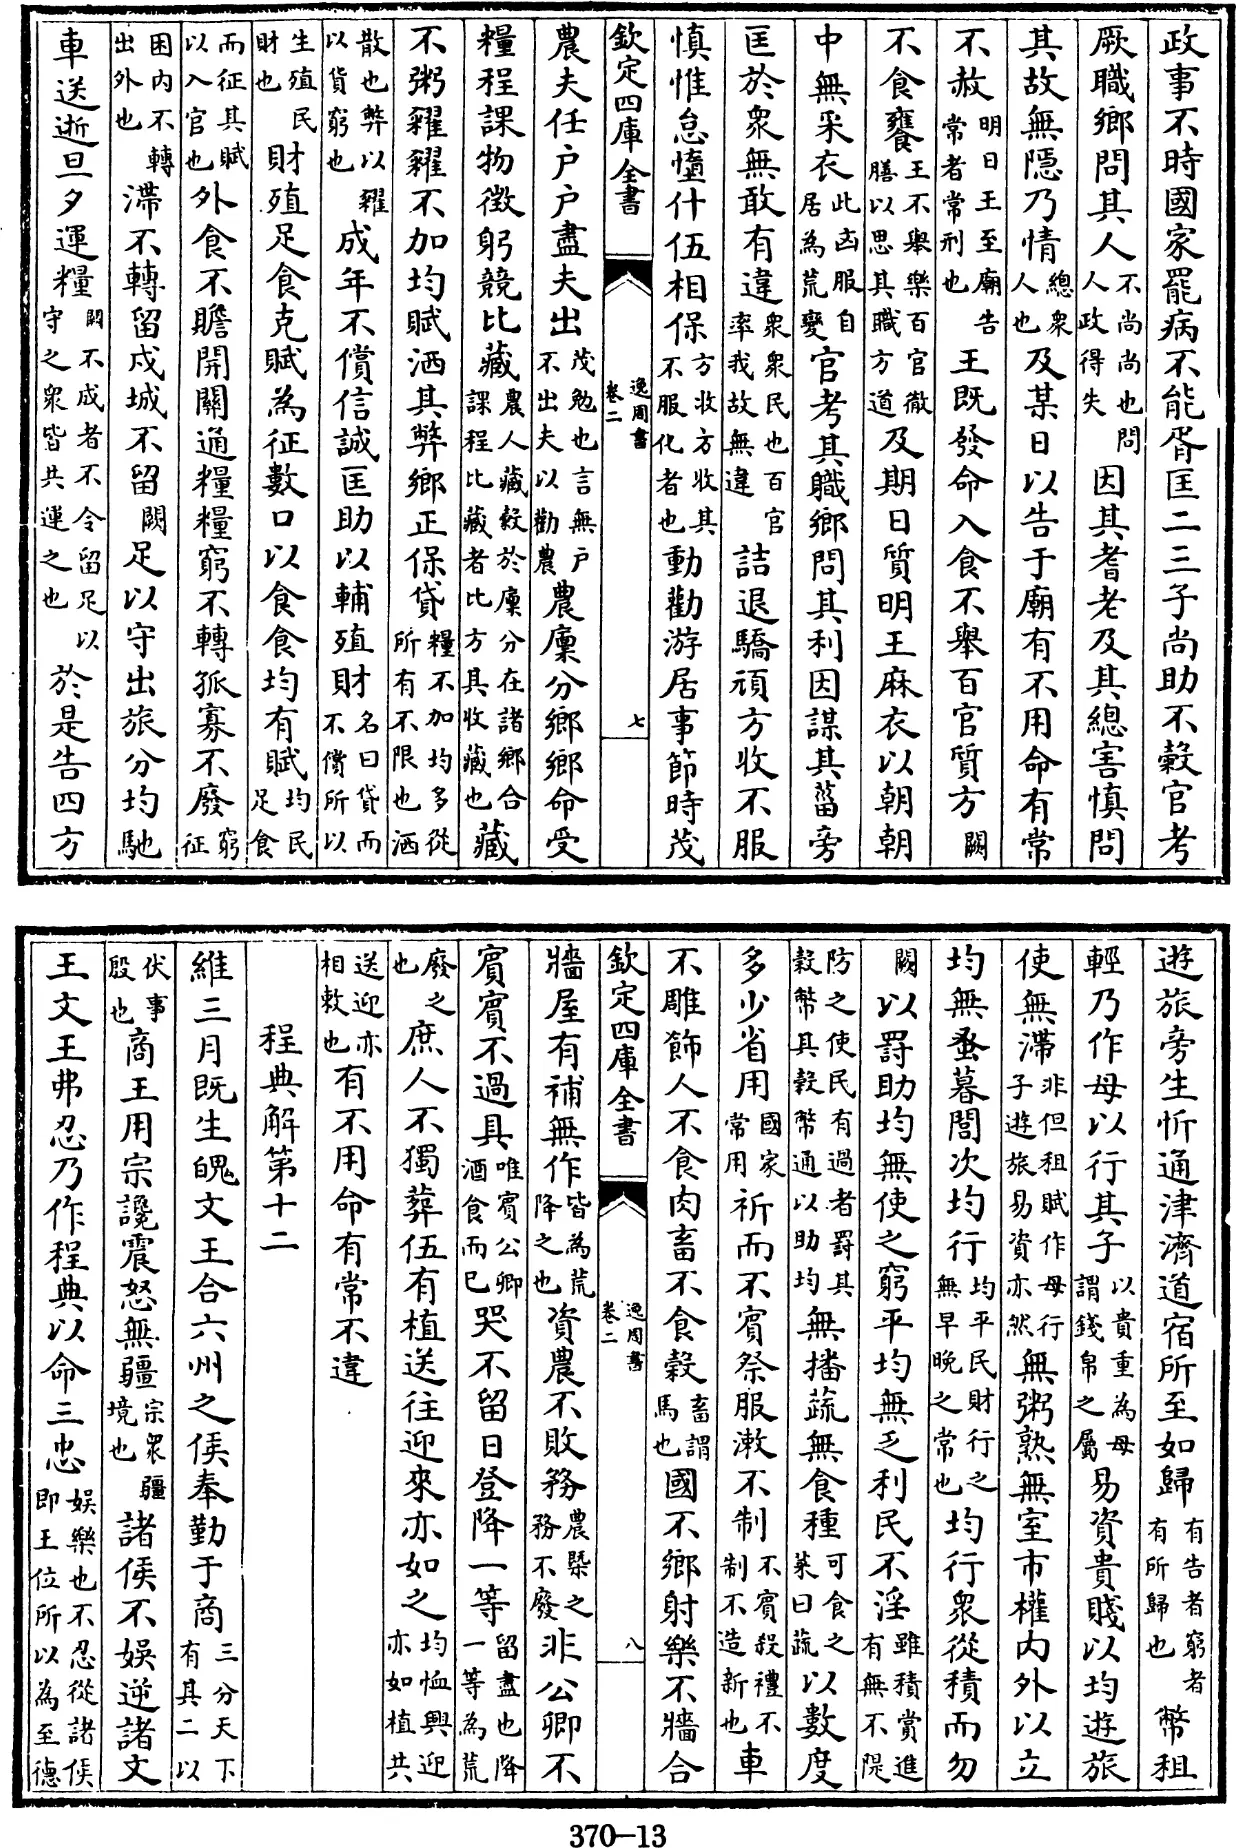 政事不時國家罷病不能胥匡二三子尚助不穀官考
厥職鄉問其人不尚尚也問人政得失因其耆老及其總害慎問
其故無隱乃情總衆人也及某日以告于廟有不用命有常
不赦明日王至廟告常者常刑也王既發命入食不舉百官質方闕
不食饔王不舉樂百官徹膳以思其職方道及期日質明王麻衣以朝朝
中無采衣此凶服自居為荒變官考其職鄉問其利因謀其菑旁
匡於衆無敢有違衆衆民也百官率我故無違詰退驕頑方收不服
慎惟怠憧什伍相保方收方收其不服化者也動勸游居事節時茂
欽定四庫全書 逸周書卷二 七
農夫任户户盡夫出茂勉也言無户不出夫以勸農農廩分鄉鄉命受
糧程課物徵躬競比藏農人藏穀於廩分在諸鄉合課程比藏者比方具收藏也藏
不粥糴糴不加均賦洒其弊鄉正保貸糧不加均多從所有不限也洒
散也弊以糴以貨窮也成年不償信誠匡助以輔殖財名曰貸而不償所以
生殖民財也財殖足食克賦為征數口以食食均有賦均民足食
而征其賦以入官也外食不贍開關通糧糧窮不轉孤寡不廢窮征
困内不轉出外也滯不轉留戍城不留闕足以守出旅分均馳
車送逝旦夕運糧闕不成者不令留足以守之衆皆共運之也於是告四方
遊旅旁生忻通津濟道宿所至如歸有告者窮者有所歸也幣租
輕乃作母以行其子以貴重為母謂錢帛之屬易資貴賤以均遊旅
使無滯非但租賦作母行子遊旅易資亦然無粥熟無室市權内外以立
均無蚤暮閭次均行均平民財行之無早晚之常也均行衆從積而勿
闕以罸助均無使之窮平均無乏利民不淫雖積賞進有無不隄
防之使民有過者罸其穀幣其穀幣通以助均無播蔬無食種可食之菜曰蔬以數度
多少省用國家常用祈而不賓祭服漱不制不賓殺禮不制不造新也車
不雕飾人不食肉畜不食穀畜謂馬也國不鄉射樂不牆合
欽定四庫全書 逸周書卷二 八
牆屋有補無作皆為荒降之也資農不敗務農槩之務不廢非公卿不
賓賓不過具唯賓公卿酒食而已哭不留日登降一等留盡也降一等為荒
廢之也庶人不獨葬伍有植送往迎來亦如之均恤興迎亦如植共
送迎亦相敕也有不用命有常不違
程典解第十二
維三月既生魄文王合六州之侯奉勤于商三分天下有其二以
伏事殷也商王用宗讒震怒無疆宗衆疆境也諸侯不娛逆諸文
王文王弗忍乃作程典以命三忠娛樂也不忍從諸侯即王位所以為至德
370—13